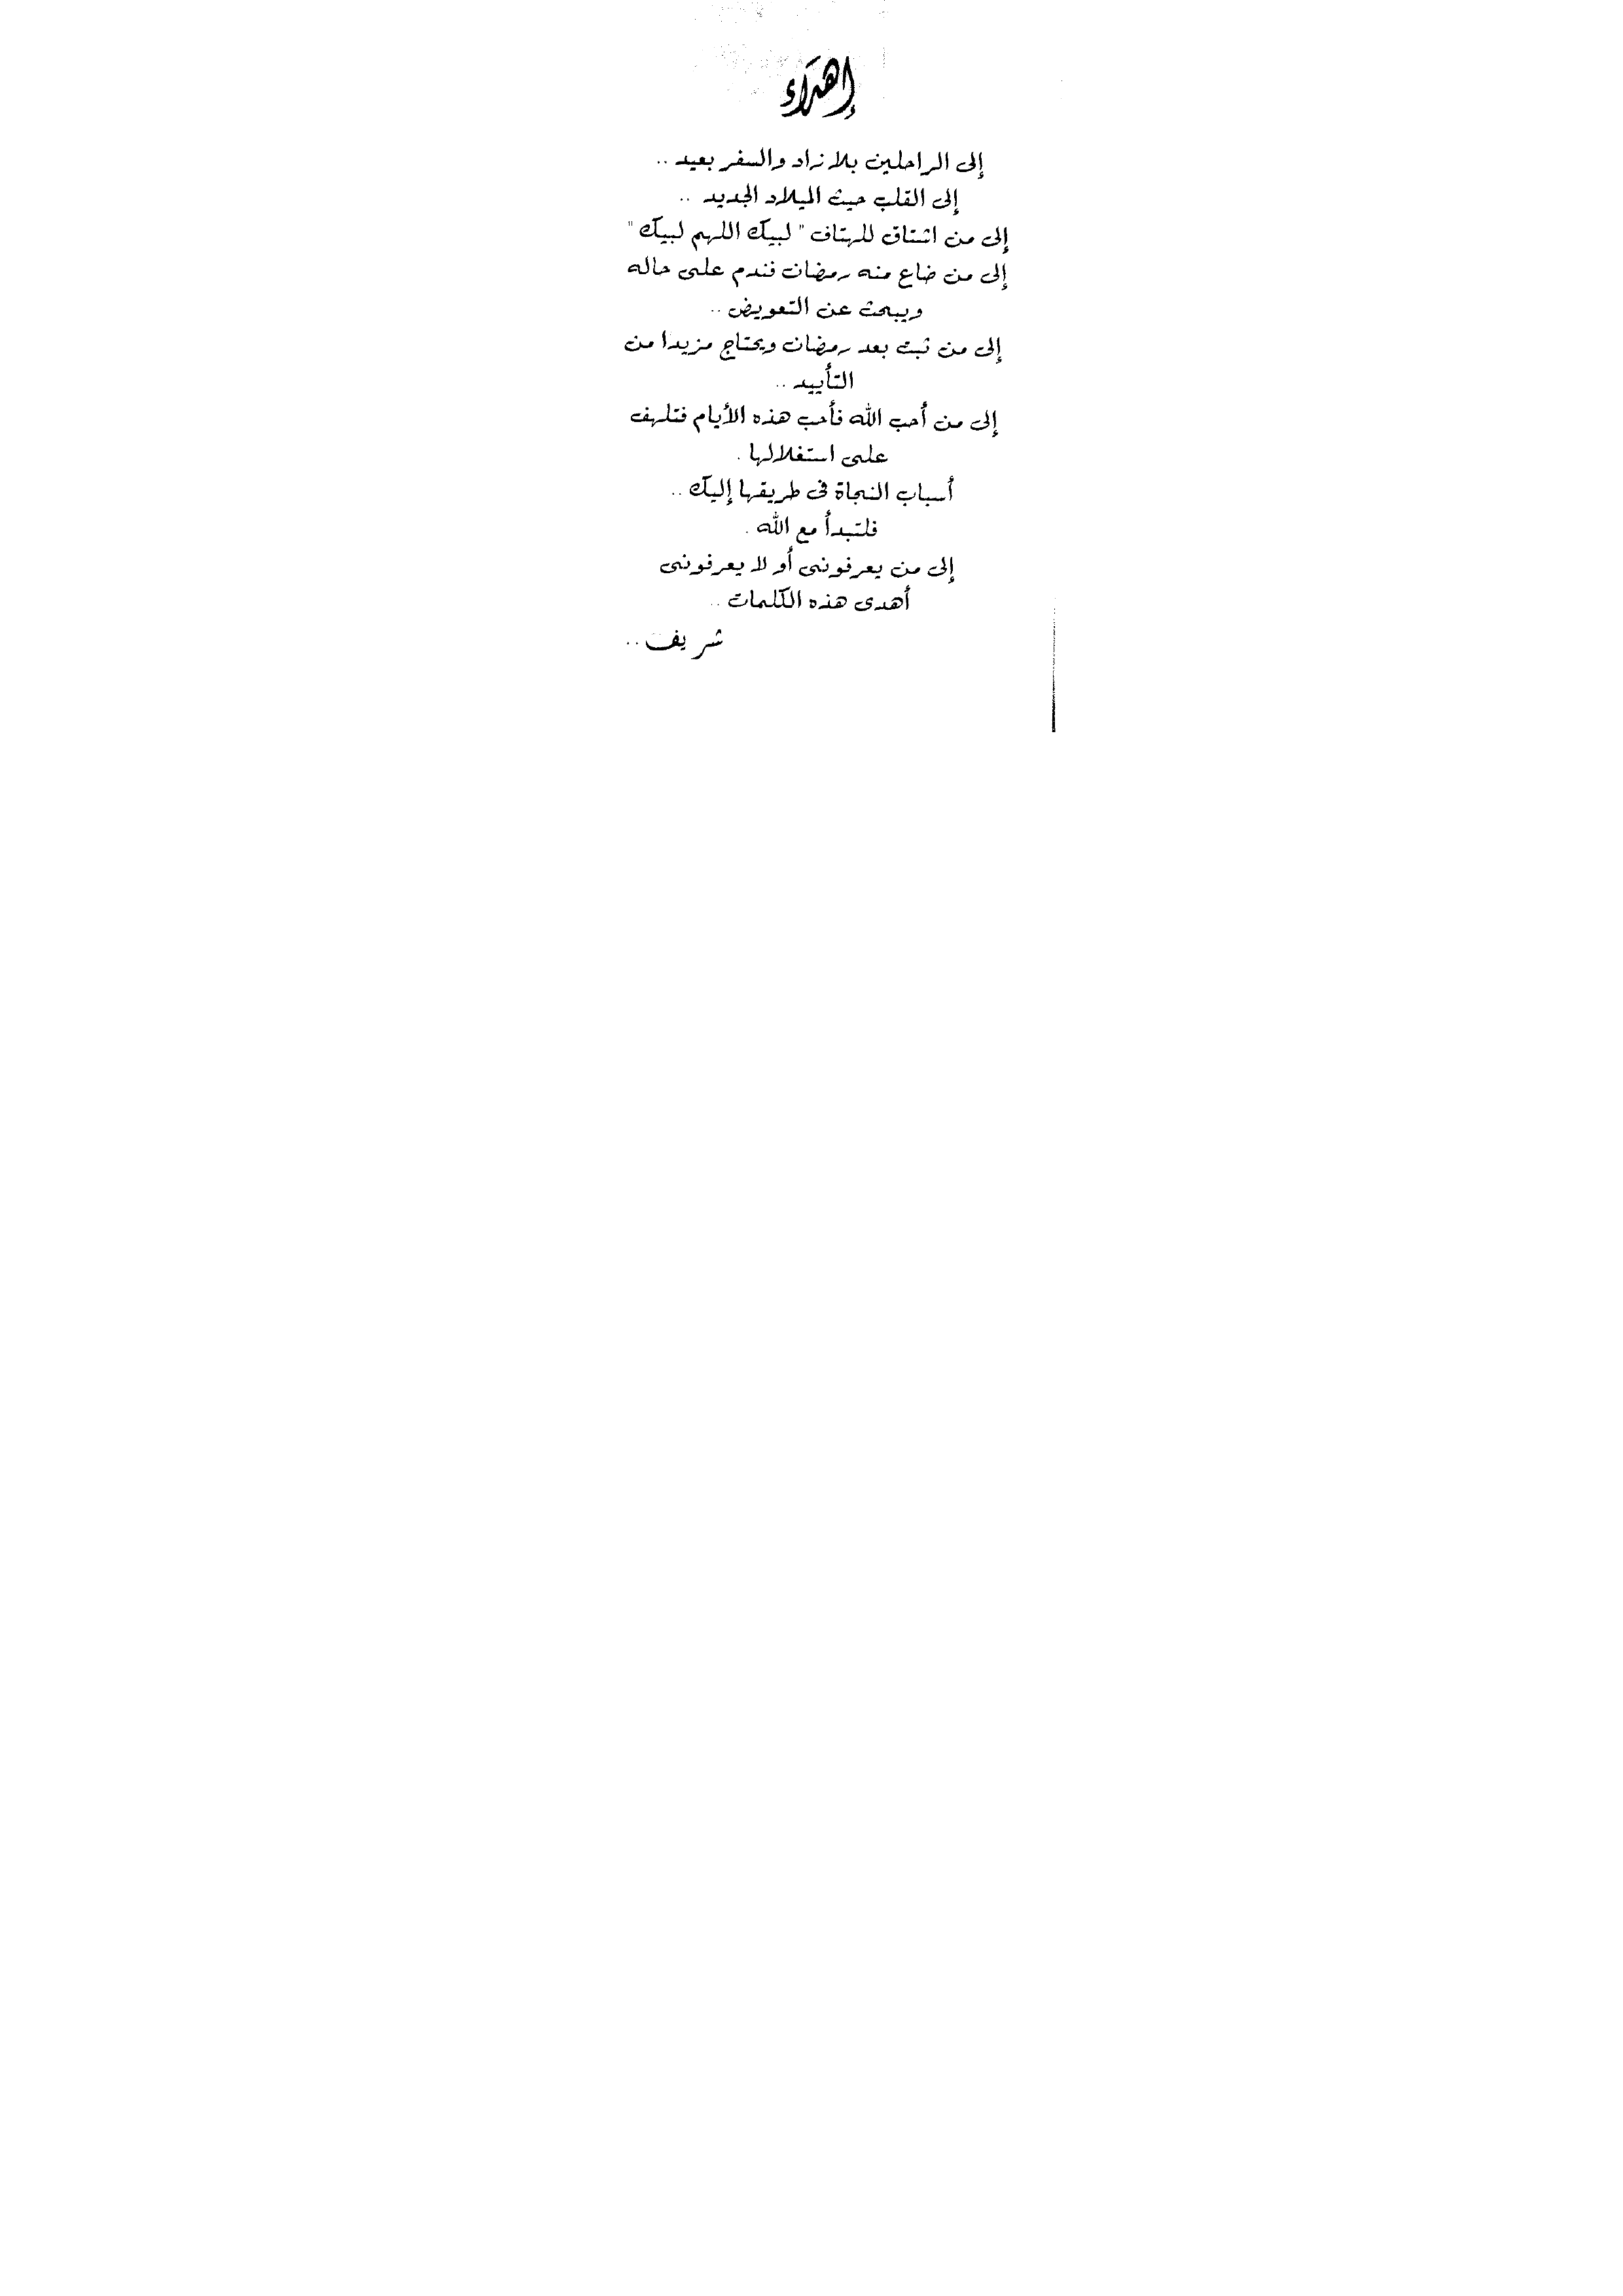 إهداء
إلى الراحلين بلا زاد والسفر بعيد ..
إلى القلب حيث الميلاد الجديد ..
إلى من اشتاق للهتاف " لبيك اللهم لبيك "
إلى من ضاع منه رمضان فندم على حاله
ويبحث عن التعويض ..
إلى من ثبت بعد رمضان ويحتاج مزيدا من
التأييد ..
إلى من أحب الله فأحب هذه الأيام فتلهف
على استغلالها .
أسباب النجاة فى طريقها إليك ..
فلتبدأ مع الله .
إلى من يعرفونى أو لا يعرفونى
أهدى هذه الكلمات ..
شريف ..